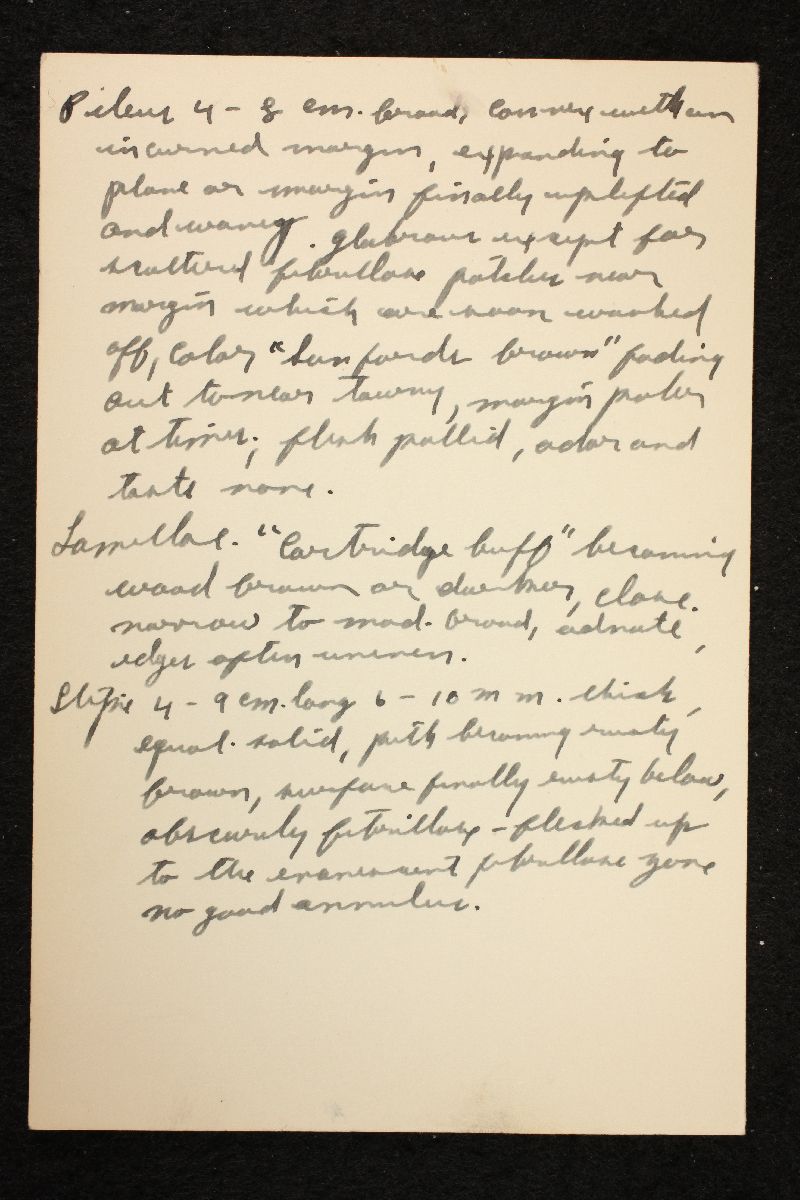 Pileus 4 - 8 cm. broad, convex with an
incurved margin, expanding to
plane or margin finally uplifted
and wavy. glabrous except for
scattered fibrillose patches near
margin which are soon washed
off, color "Sanfords brown" fading
out to near tawny, margin paler
at times; flesh pallid, odor and
taste none.
Lamellae. "Cartridge buff" becoming
wood brown or darker, close.
narrow to mod. broad, adnate,
edges often uneven.
Stipe 4 - 9 cm. long 6 - 10 m m. thick,
equal. solid, pith becoming rusty
brown, surface finally rusty below,
obscurely fibrillose - flecked up
to the evanescent fibrillose zone
no good annulus.